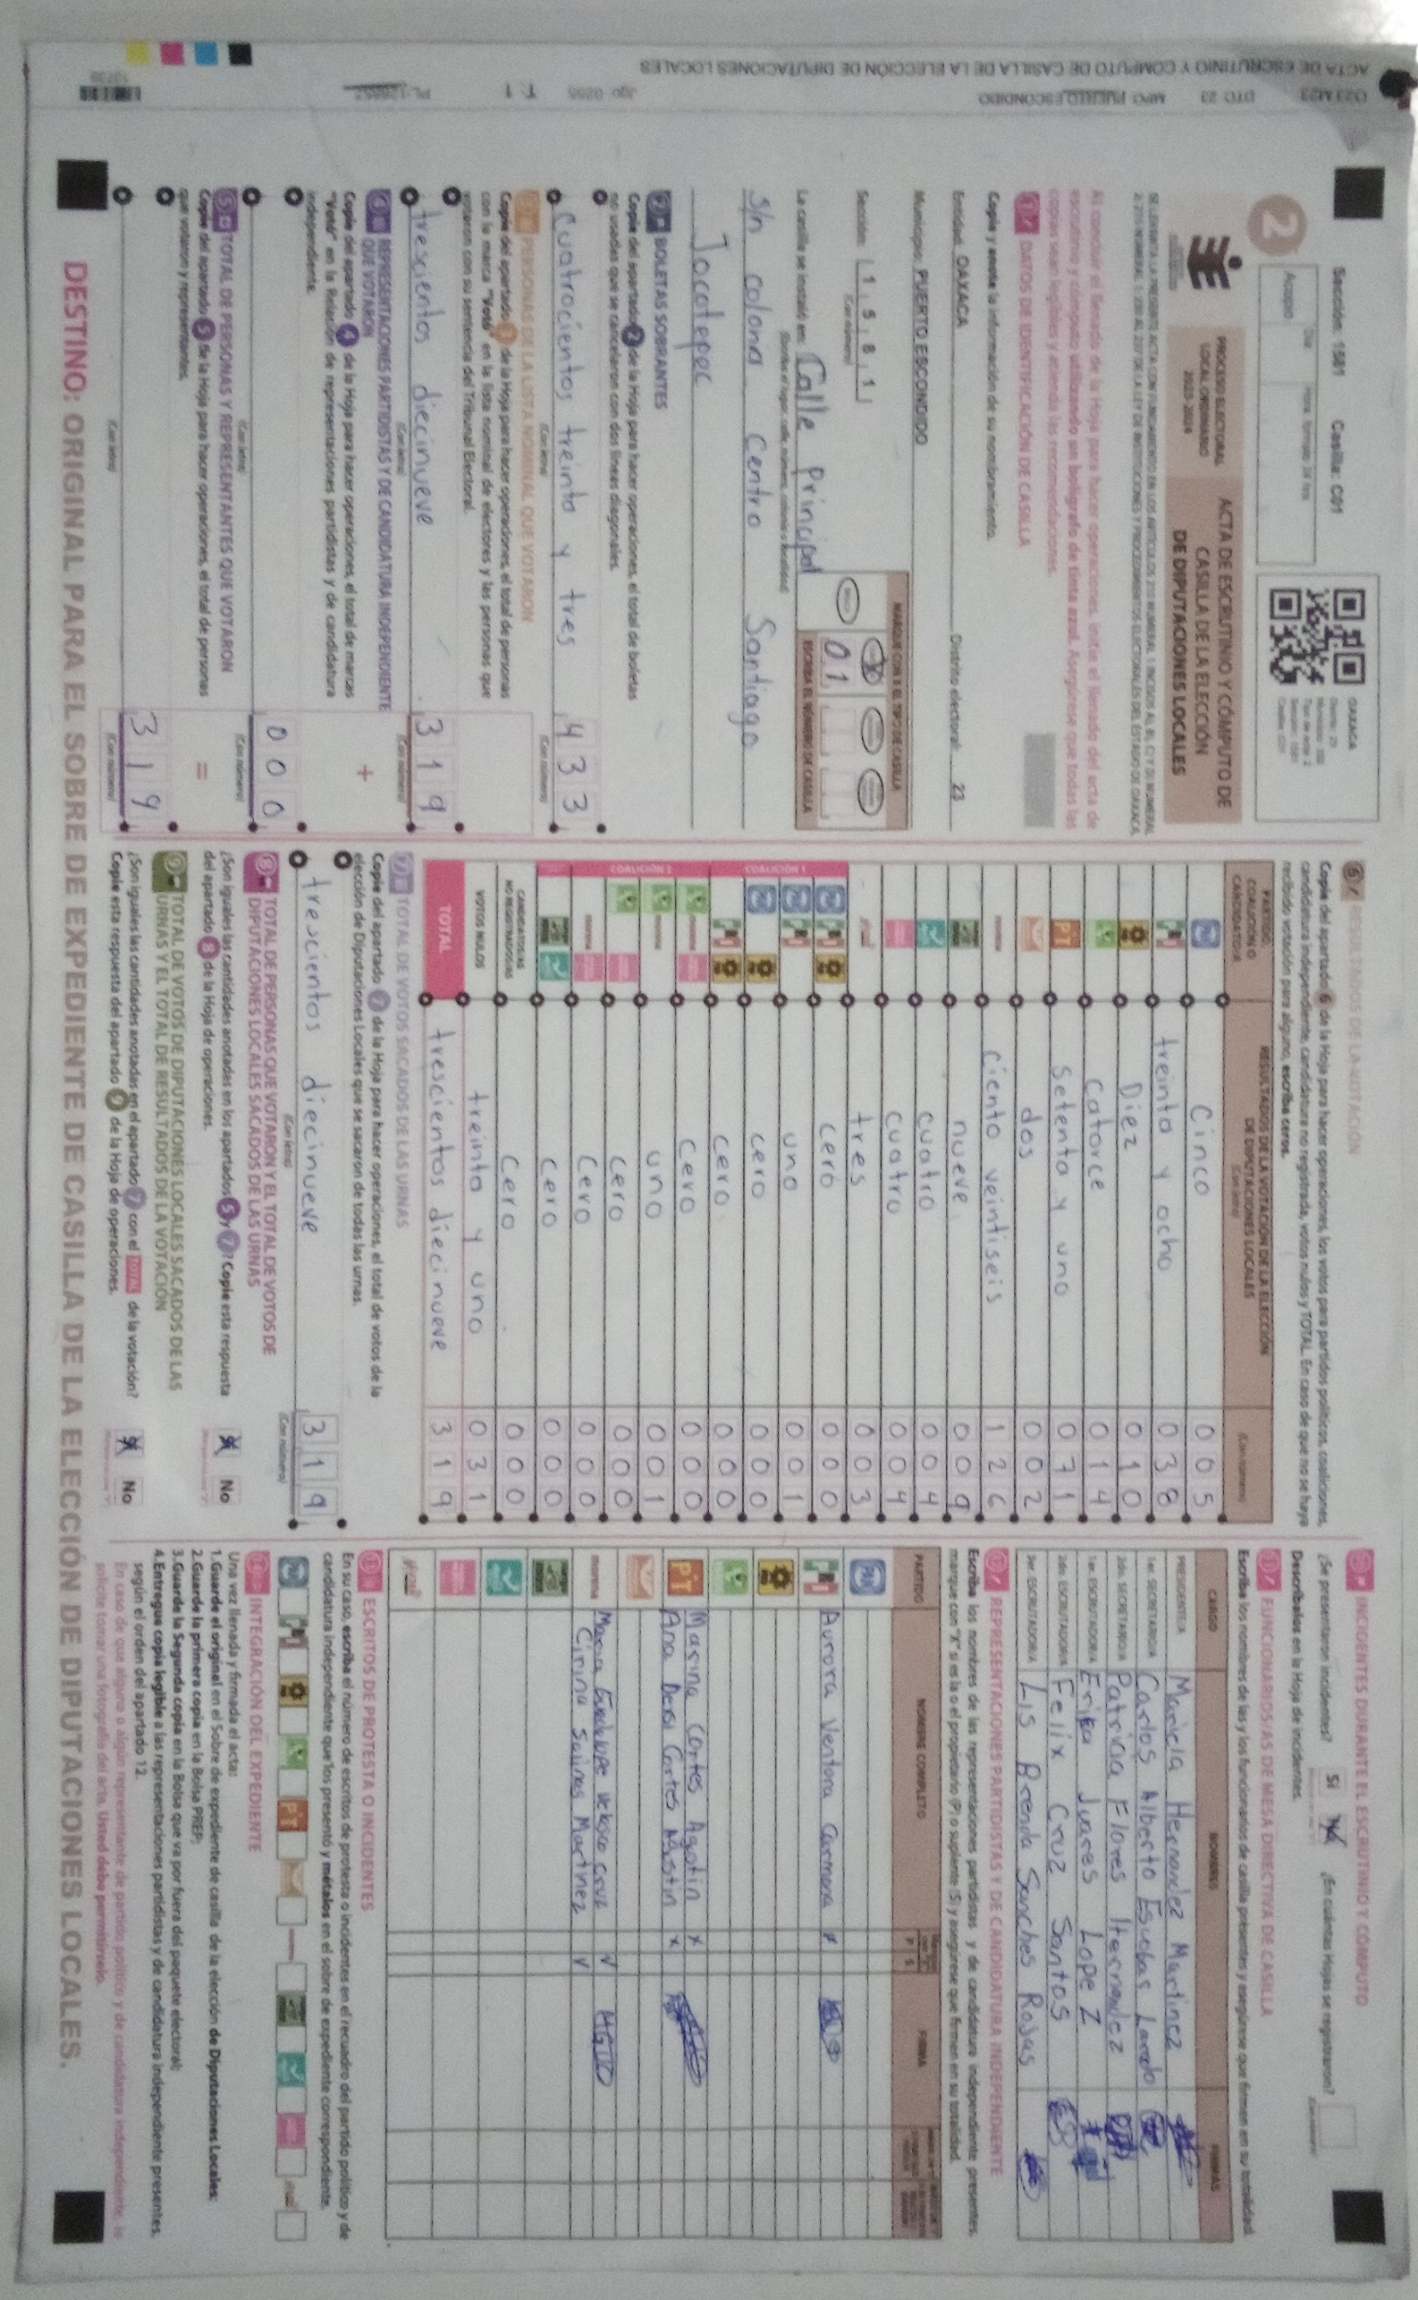 ACTA DE ESCRUTINIO Y CÓMPUTO DE CASILLA DE LA ELECCIÓN DE DIPUTACIONES LOCALES
DTO: 23
MPO: PUERTO ESCONDIDO
T: 1
Sección: 1581 Casilla: C01
OAXACA
2
Acopio
PROCESO ELECTORAL
LOCAL ORDINARIO
2023-2024
ACTA DE ESCRUTINIO Y CÓMPUTO DE
CASILLA DE LA ELECCIÓN
DE DIPUTACIONES LOCALES
Al concluir el llenado de la Hoja para hacer operaciones, inicie el llenado del acta de
escrutinio y cómputo utilizando un bolígrafo de tinta azul. Asegúrese que todas las
copias sean legibles y atienda las recomendaciones.
1 DATOS DE IDENTIFICACIÓN DE CASILLA
Copie y anote la información de su nombramiento.
Entidad: OAXACA Distrito electoral: 23
Municipio: PUERTO ESCONDIDO
Sección: 1 5 8 1
(Con número)
MARQUE CON X EL TIPO DE CASILLA
0 1
ESCRIBA EL NÚMERO DE CASILLA
La casilla se instaló en: Calle Principal
S/n colona centro Santiago
Jocotepec
2 BOLETAS SOBRANTES
Copie del apartado 2 de la Hoja para hacer operaciones, el total de boletas
no usadas que se cancelaron con dos líneas diagonales.
cuatrocientos treinta y tres 4 3 3
(Con letra) (Con número)
3 PERSONAS DE LA LISTA NOMINAL QUE VOTARON
Copie del apartado 3 de la Hoja para hacer operaciones, el total de personas
con la marca "Votó" en la lista nominal de electores y las personas que
votaron con su sentencia del Tribunal Electoral.
trescientos diecinueve 3 1 9
(Con letra) (Con número)
4 REPRESENTACIONES PARTIDISTAS Y DE CANDIDATURA INDEPENDIENTE
QUE VOTARON
Copie del apartado 4 de la Hoja para hacer operaciones, el total de marcas
"Votó" en la Relación de representaciones partidistas y de candidatura
independiente.
+
0 0 0
(Con letra) (Con número)
5 TOTAL DE PERSONAS Y REPRESENTANTES QUE VOTARON
Copie del apartado 5 de la Hoja para hacer operaciones, el total de personas
que votaron y representantes.
=
3 1 9
(Con letra) (Con número)
6 RESULTADOS DE LA VOTACIÓN
Copie del apartado 6 de la Hoja para hacer operaciones, los votos para partidos políticos, coaliciones,
candidatura independiente, candidatura no registrada, votos nulos y TOTAL. En caso de que no se haya
recibido votación para alguno, escriba ceros.
PARTIDO,
COALICIÓN O
CANDIDATO/A
RESULTADOS DE LA VOTACIÓN DE LA ELECCIÓN
DE DIPUTACIONES LOCALES
(Con letra) (Con número)
Cinco 0 0 5
treinta y ocho 0 3 8
Diez 0 1 0
Catorce 0 1 4
PT Setenta y uno 0 7 1
dos 0 0 2
Ciento veintiseis 1 2 6
nueve 0 0 9
cuatro 0 0 4
cuatro 0 0 4
tres 0 0 3
COALICIÓN 1
cero 0 0 0
uno 0 0 1
cero 0 0 0
cero 0 0 0
COALICIÓN 2
cero 0 0 0
uno 0 0 1
cero 0 0 0
cero 0 0 0
cero 0 0 0
CANDIDATOS/AS
NO REGISTRADOS/AS
cero 0 0 0
VOTOS NULOS treinta y uno 0 3 1
TOTAL trescientos diecinueve 3 1 9
7 TOTAL DE VOTOS SACADOS DE LAS URNAS
Copie del apartado 7 de la Hoja para hacer operaciones, el total de votos de la
elección de Diputaciones Locales que se sacaron de todas las urnas.
trescientos diecinueve 3 1 9
(Con letra) (Con número)
8 TOTAL DE PERSONAS QUE VOTARON Y EL TOTAL DE VOTOS DE
DIPUTACIONES LOCALES SACADOS DE LAS URNAS
¿Son iguales las cantidades anotadas en los apartados 5 y 7? Copie esta respuesta
del apartado 8 de la Hoja de operaciones.
Sí No
9 TOTAL DE VOTOS DE DIPUTACIONES LOCALES SACADOS DE LAS
URNAS Y EL TOTAL DE RESULTADOS DE LA VOTACIÓN
¿Son iguales las cantidades anotadas en el apartado 7 con el TOTAL de la votación?
Copie esta respuesta del apartado 9 de la Hoja de operaciones.
Sí No
10 INCIDENTES DURANTE EL ESCRUTINIO Y CÓMPUTO
¿Se presentaron incidentes? Sí No ¿En cuántas Hojas se registraron?
Descríbalos en la Hoja de incidentes.
11 FUNCIONARIOS/AS DE MESA DIRECTIVA DE CASILLA
Escriba los nombres de las y los funcionarios de casilla presentes y asegúrese que firmen en su totalidad.
CARGO NOMBRES FIRMAS
PRESIDENTE/A Maricla Hernandez Martinez
1er. SECRETARIO/A Carlos Alberto
2do. SECRETARIO/A Patricia Flores Hernandez
1er. ESCRUTADOR/A Erika Juares Lopez
2do. ESCRUTADOR/A Felix Cruz Santos
3er. ESCRUTADOR/A Lis Brenda Sanches Rojas
12 REPRESENTACIONES PARTIDISTAS Y DE CANDIDATURA INDEPENDIENTE
Escriba los nombres de las representaciones partidistas y de candidatura independiente presentes,
marque con "X" si es la o el propietario (P) o suplente (S) y asegúrese que firmen en su totalidad.
PARTIDO NOMBRE COMPLETO FIRMA
Aurora Ventura Carmona
PT Marina Cortes Agotin X
Ana Deisi Cortes X
morena Maria Guadalupe
Cirina Salinas Martinez
13 ESCRITOS DE PROTESTA O INCIDENTES
En su caso, escriba el número de escritos de protesta o incidentes en el recuadro del partido político y de
candidatura independiente que los presentó y métalos en el sobre de expediente correspondiente.
PT
14 INTEGRACIÓN DEL EXPEDIENTE
Una vez llenada y firmada el acta:
1.Guarde el original en el Sobre de expediente de casilla de la elección de Diputaciones Locales;
2.Guarde la primera copia en la Bolsa PREP;
3.Guarde la Segunda copia en la Bolsa que va por fuera del paquete electoral;
4.Entregue copia legible a las representaciones partidistas y de candidatura independiente presentes,
según el orden del apartado 12.
En caso de que alguna o algún representante de partido político y de candidatura independiente, le
solicite tomar una fotografía del acta, Usted debe permitírselo.
DESTINO: ORIGINAL PARA EL SOBRE DE EXPEDIENTE DE CASILLA DE LA ELECCIÓN DE DIPUTACIONES LOCALES.